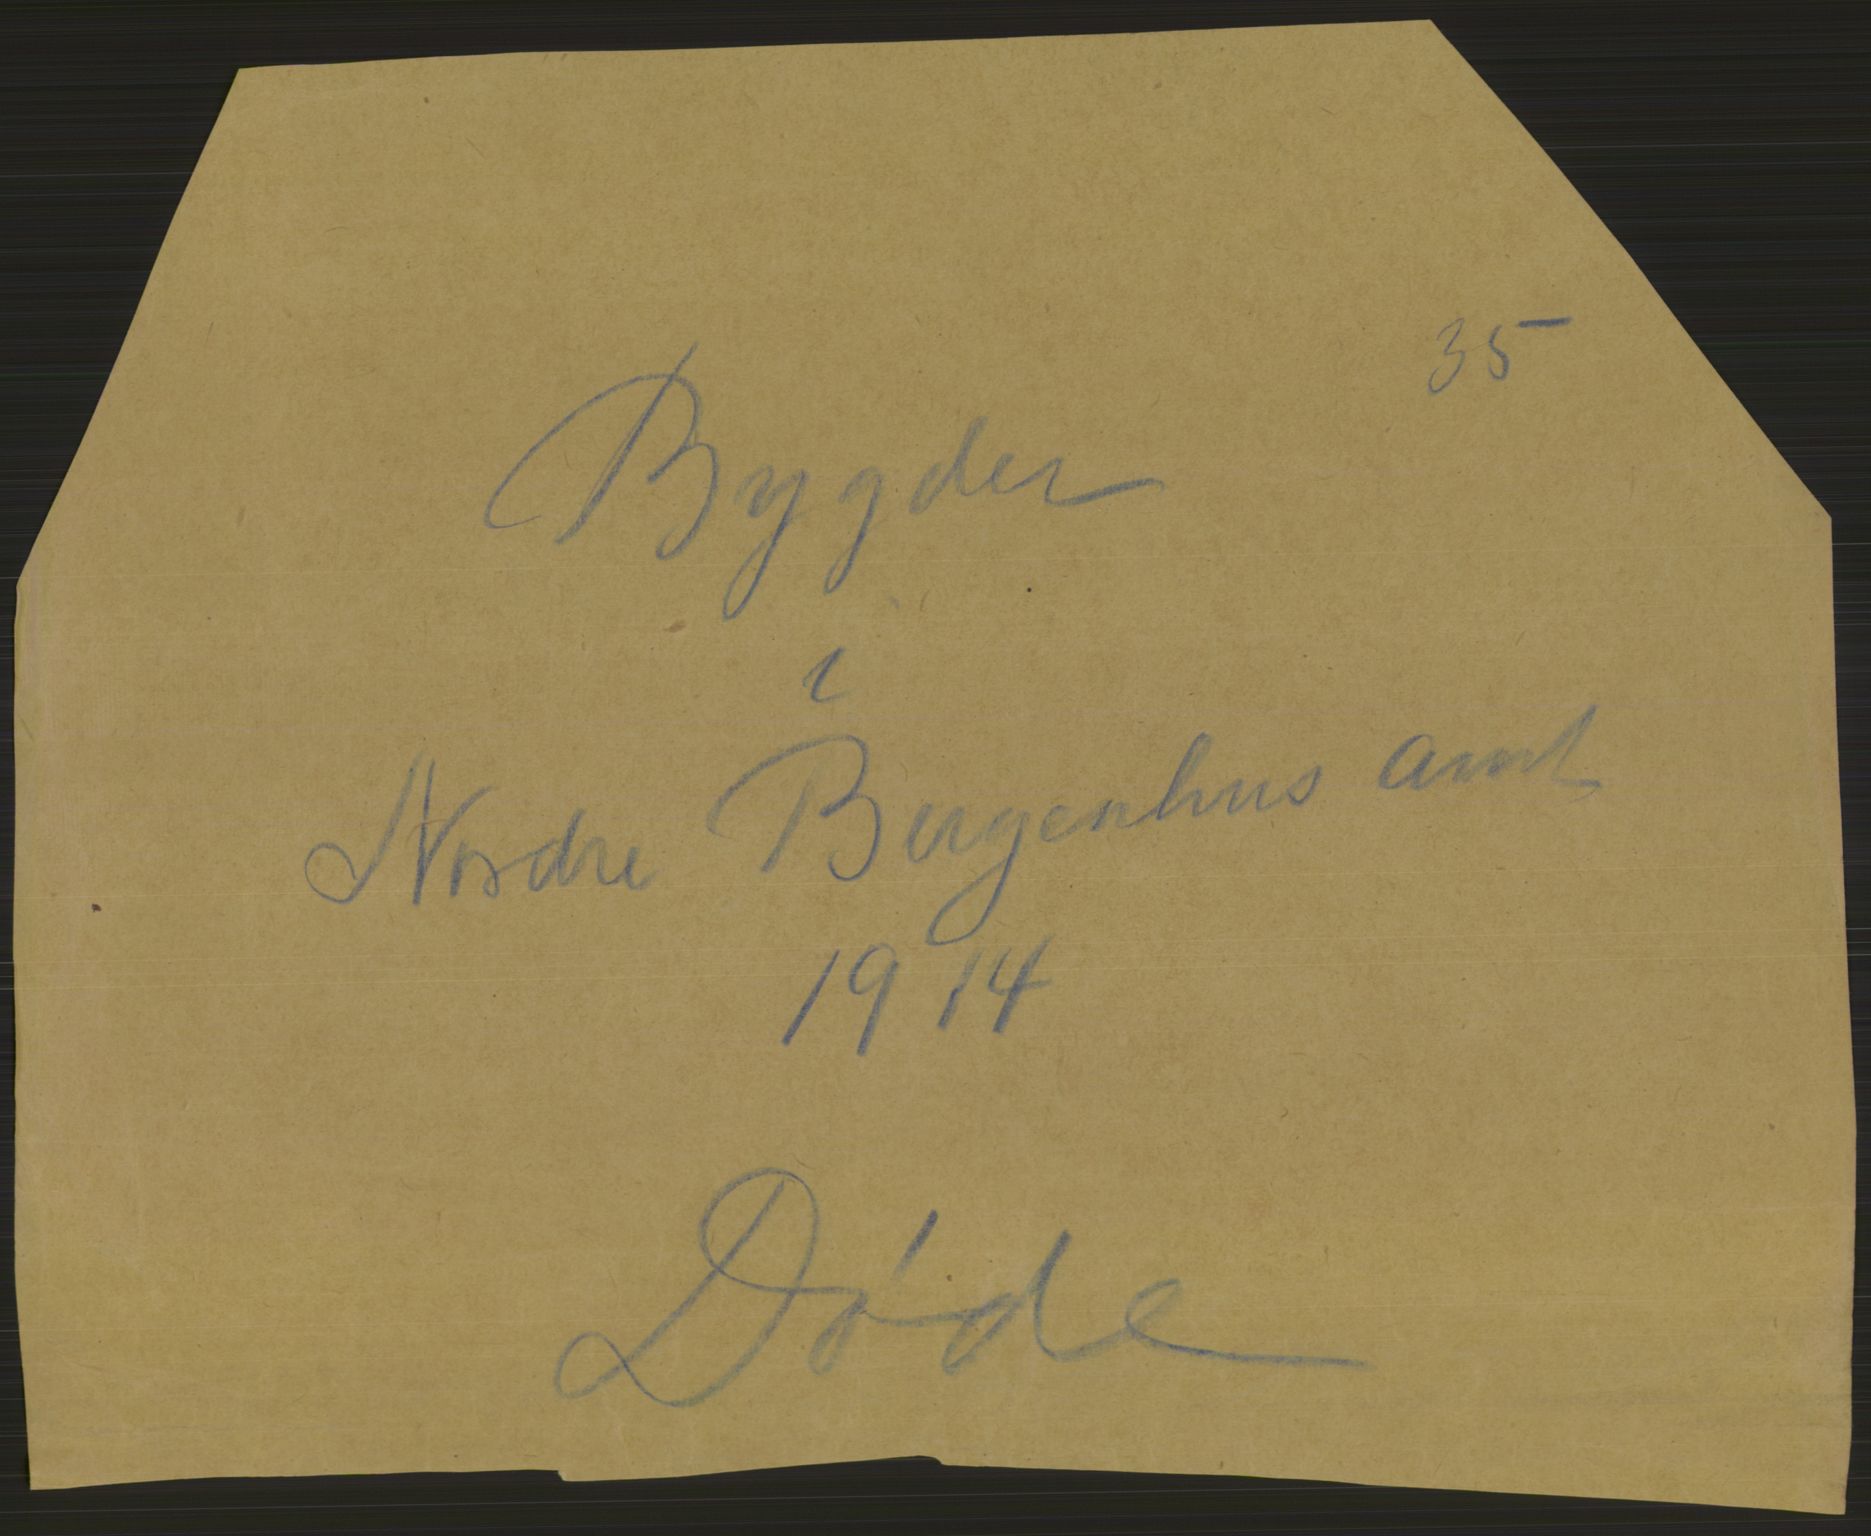 35
Bygder
i
Nordre Bergenhus amt
1914
Døde